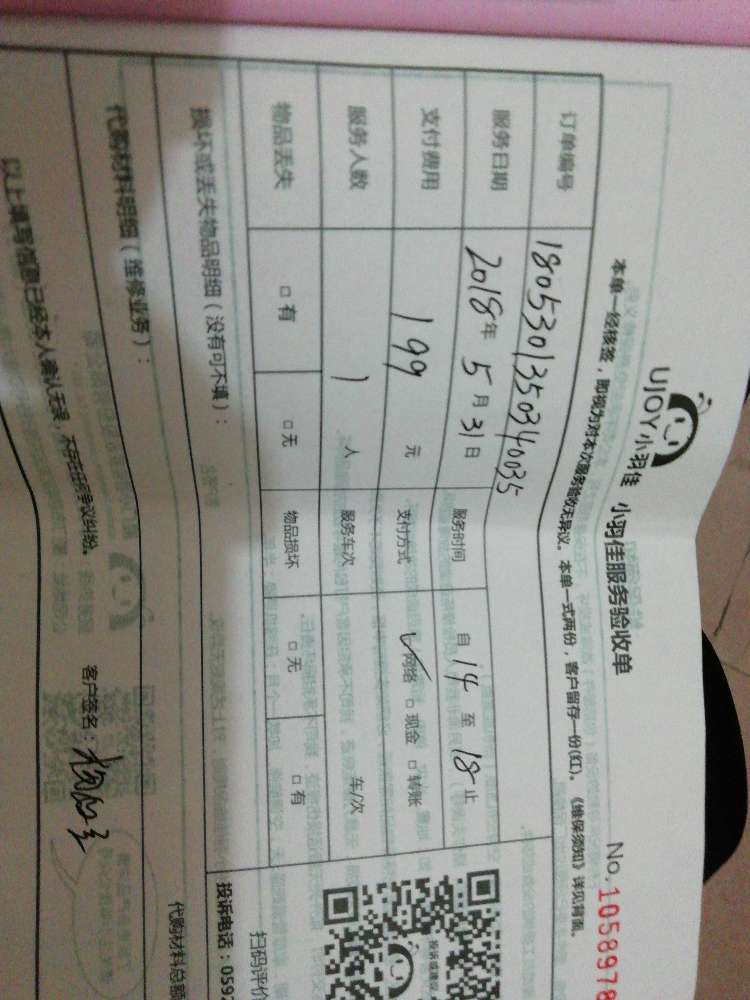 UJOY小羽佳 小羽佳服务验收单 No. 1058978
本单一经核签，即视为对本次服务验收无异议。本单一式两份，客户留存一份(红)。《维保须知》详见背面。
订单编号 1805301350340035
服务日期 2018年 5月 31日 服务时间 自 14 至 18 止
支付费用 199 元 支付方式 ✓网络 □现金 □转账
服务人数 1 人 服务车次 车/次
物品丢失 □有 □无 物品损坏 □无 □有
损坏或丢失物品明细（没有可不填）：
扫码评价
投诉电话：059
代购材料明细（维修业务）：
代购材料总额
以上填写信息已经本人确认无误，不存在任何争议纠纷。 客户签名：